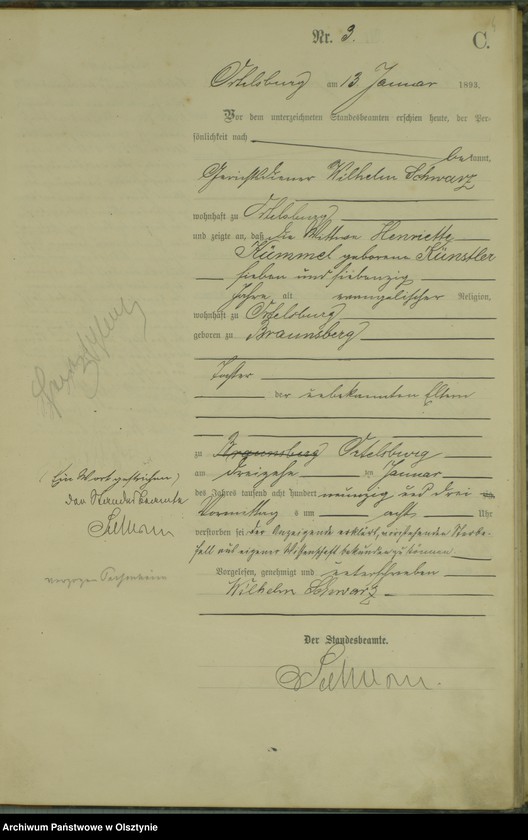 Nr. 3.
C.
Ortelsburg am 13. Januar 1893.
Vor dem unterzeichneten Standesbeamten erschien heute, der Per-
sönlichkeit nach
bekannt,
Gerichtsdiener Wilhelm Schwarz
wohnhaft zu Ortelsburg
und zeigte an, daß die Wittwe Henriette
Kümmel geborene Künstler
sieben und siebenzig
Jahre alt evangelischer Religion,
wohnhaft zu Ortelsburg
geboren zu Braunsberg
Tochter
der unbekannten Eltern
zu Braunsberg Ortelsburg
am dreizehn ten Januar
des Jahres tausend acht hundert neunzig und drei
Vormittag s um acht Uhr
verstorben sei, der Anzeigende erklärt, vorstehenden Sterbe-
fall aus eigener Wissenschaft bekunden zu können
Vorgelesen, genehmigt und unterschrieben
Wilhelm Schwarz
Der Standesbeamte.
(Ein Wort gestrichen)
Der Standesbeamte
Archiwum Państwowe w Olsztynie